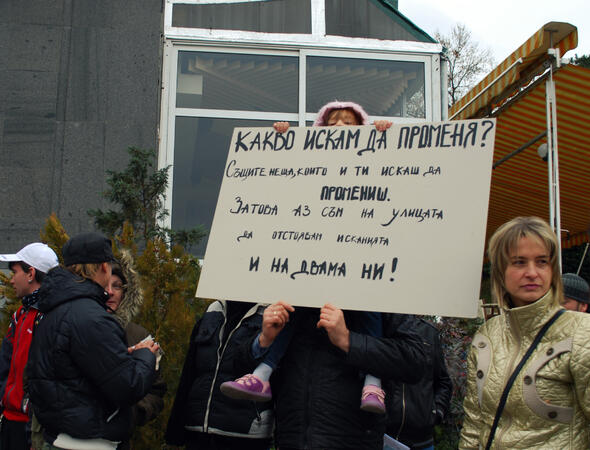 КАКВО ИСКАМ ДА ПРОМЕНЯ?
СЪЩИТЕ НЕЩА, КОИТО И ТИ ИСКАШ ДА
ПРОМЕНИШ.
ЗАТОВА АЗ СЪМ НА УЛИЦАТА
ДА ОТСТОЯВАМ ИСКАНИЯТА
И НА ДВАМА НИ!